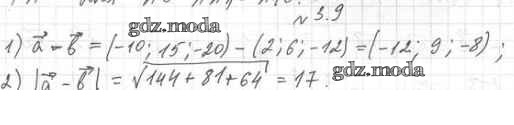 № 3.9
gdz.moda
1) a⃗ - b⃗ = (-10; 15; -20) - (2; 6; -12) = (-12; 9; -8);
gdz.moda
2) |a⃗ - b⃗| = √144 + 81 + 64 = 17.